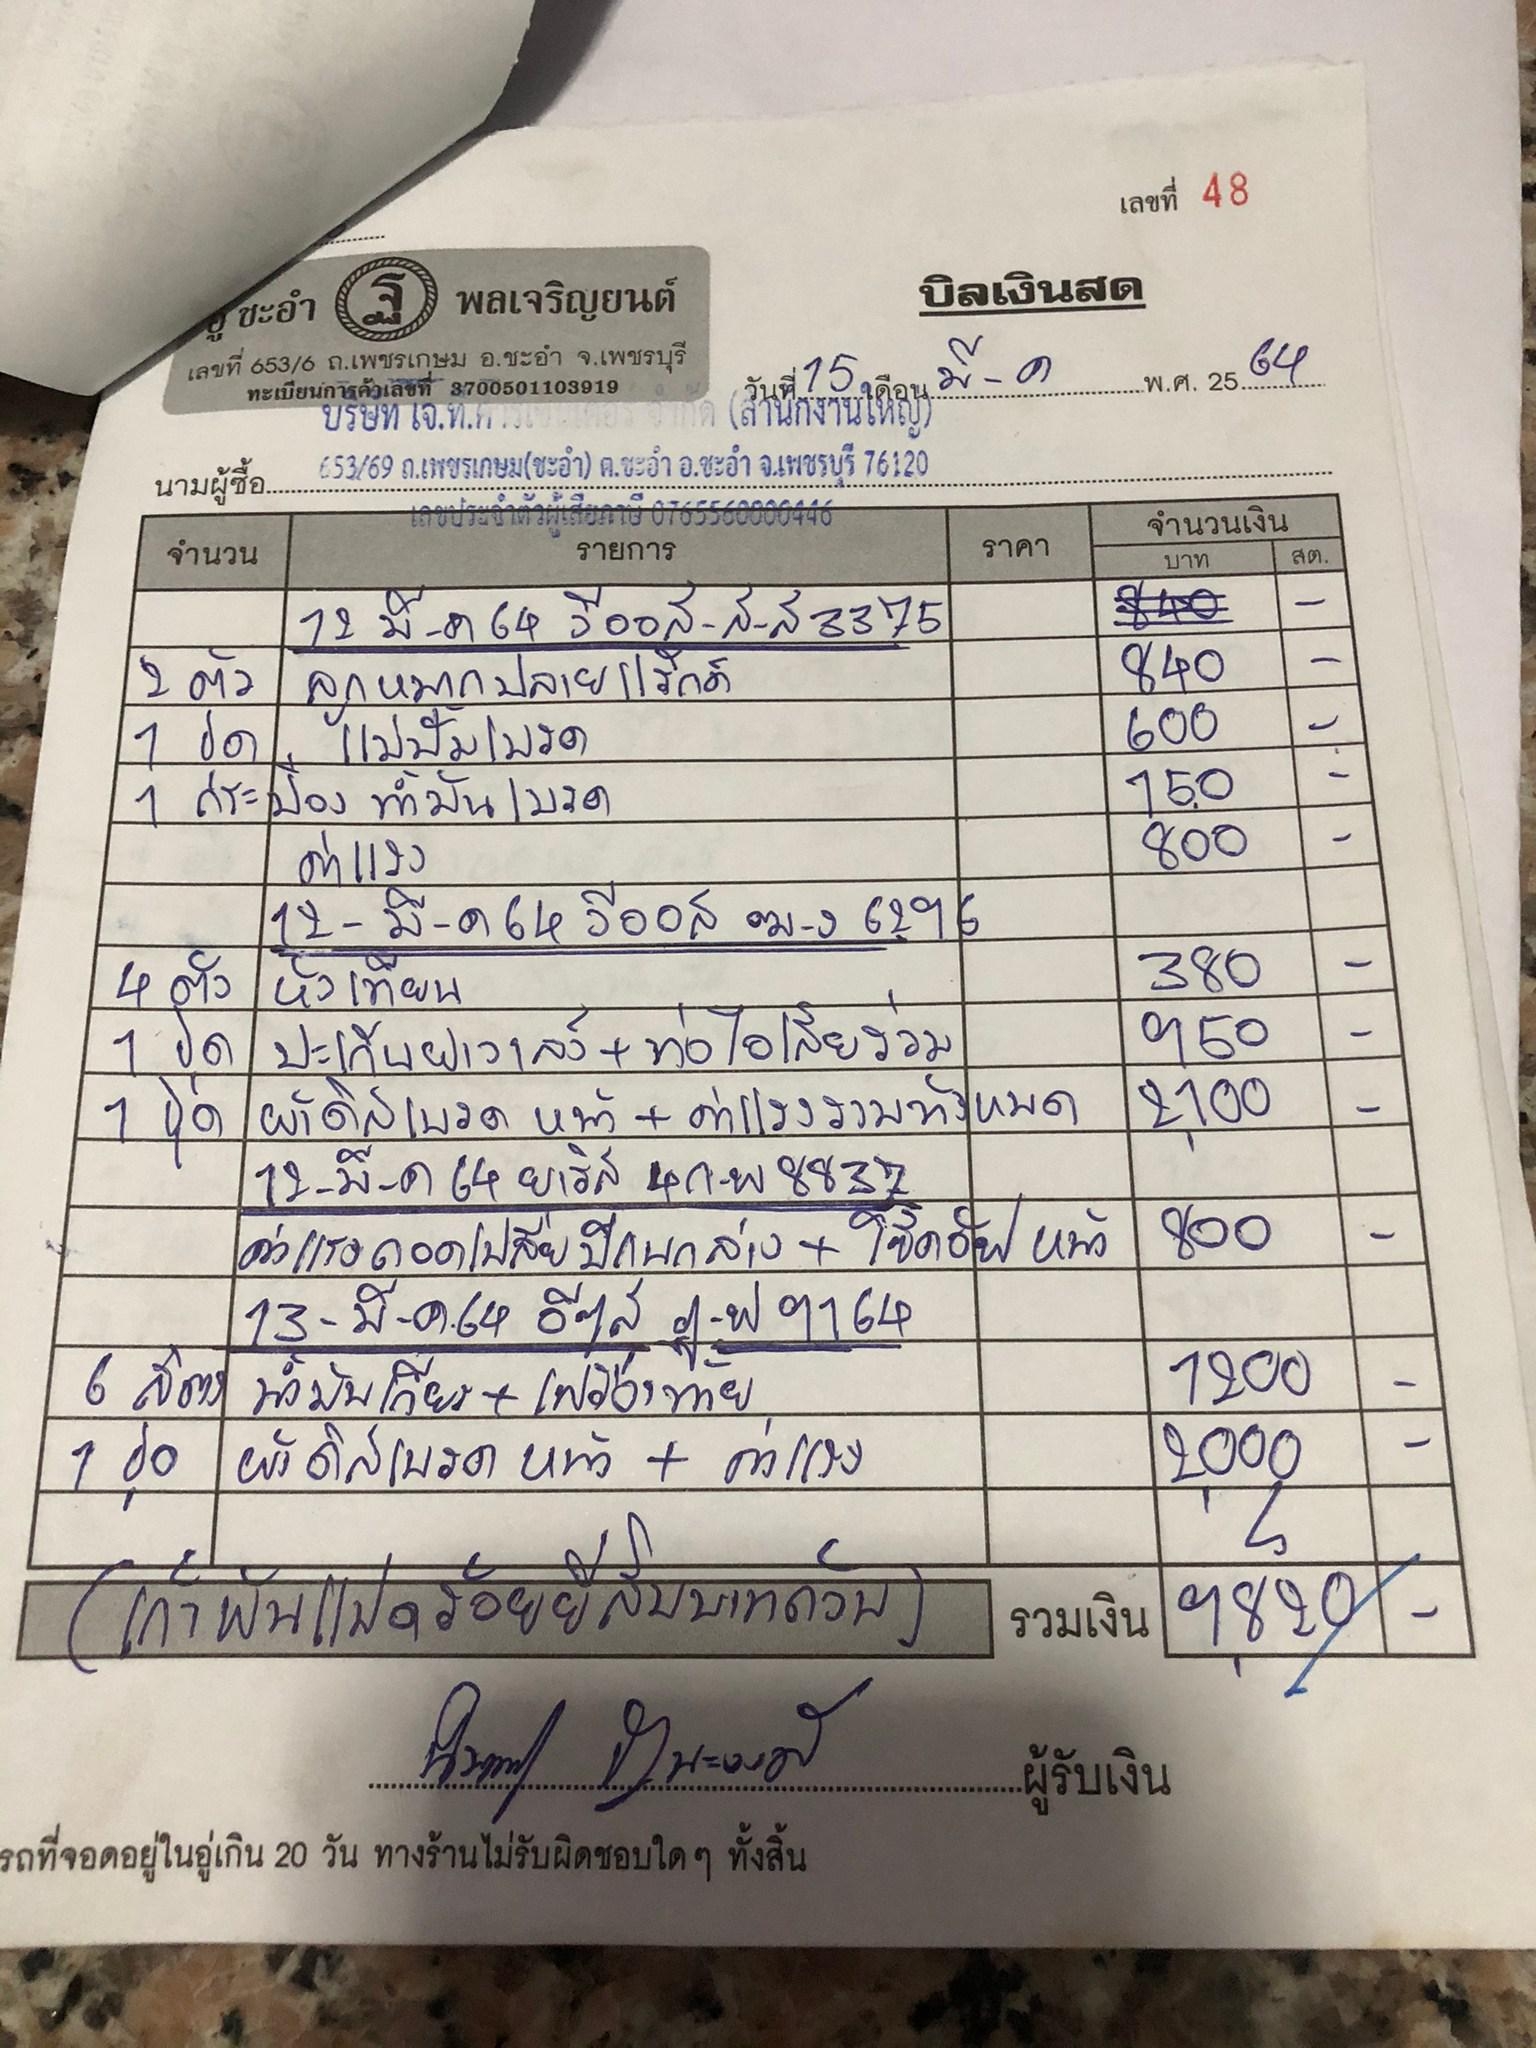 เลขที่ 48
อู่ ชะอำ ฐ พลเจริญยนต์
บิลเงินสด
เลขที่ 653/6 ถ.เพชรเกษม อ.ชะอำ จ.เพชรบุรี
ทะเบียนการค้าเลขที่ 3700501103919
วันที่ 15 เดือน มี-ค พ.ศ. 25 64
บริษัท เจ.ที.คาร์เซ็นเตอร์ จำกัด (สำนักงานใหญ่)
653/69 ถ.เพชรเกษม(ชะอำ) ต.ชะอำ อ.ชะอำ จ.เพชรบุรี 76120
นามผู้ซื้อ
เลขประจำตัวผู้เสียภาษี 0765560000446
จำนวน รายการ ราคา จำนวนเงิน
บาท สต.
12 มี-ค 64 วีออส-ส-ส 3375 840 -
2 ตัว ลูกหมากปลายแร็คค์ 840 -
1 ชุด แม่ปั๊มเบรค 600 -
1 กระป๋อง น้ำมันเบรค 150 -
ค่าแรง 800 -
12-มี-ค 64 วีออส ฆม-ง 6296
4 ตัว หัวเทียน 380 -
1 ชุด ปะเก็นฝาวาล์ว + ท่อไอเสียร่วม 950 -
1 ชุด ผ้าดิสเบรค หน้า + ค่าแรงรวมทั้งหมด 2,100 -
12-มี-ค 64 ยาริส 4ก-พ 8837
ค่าแรงถอดเปลี่ยปีกนกล่าง + โช๊คอัฟ หน้า 800 -
13-มี-ค.64 ฎ-ฟ 9164
6 ลิตร น้ำมันเกียร + เฟืองท้าย 1200 -
1 ชุด ผ้าดิสเบรค หน้า + ค่าแรง 2,000 -
(เก้าพันแปดร้อยยี่สิบบาทถ้วน) รวมเงิน 9,820 -
ผู้รับเงิน
รถที่จอดอยู่ในอู่เกิน 20 วัน ทางร้านไม่รับผิดชอบใดๆ ทั้งสิ้น